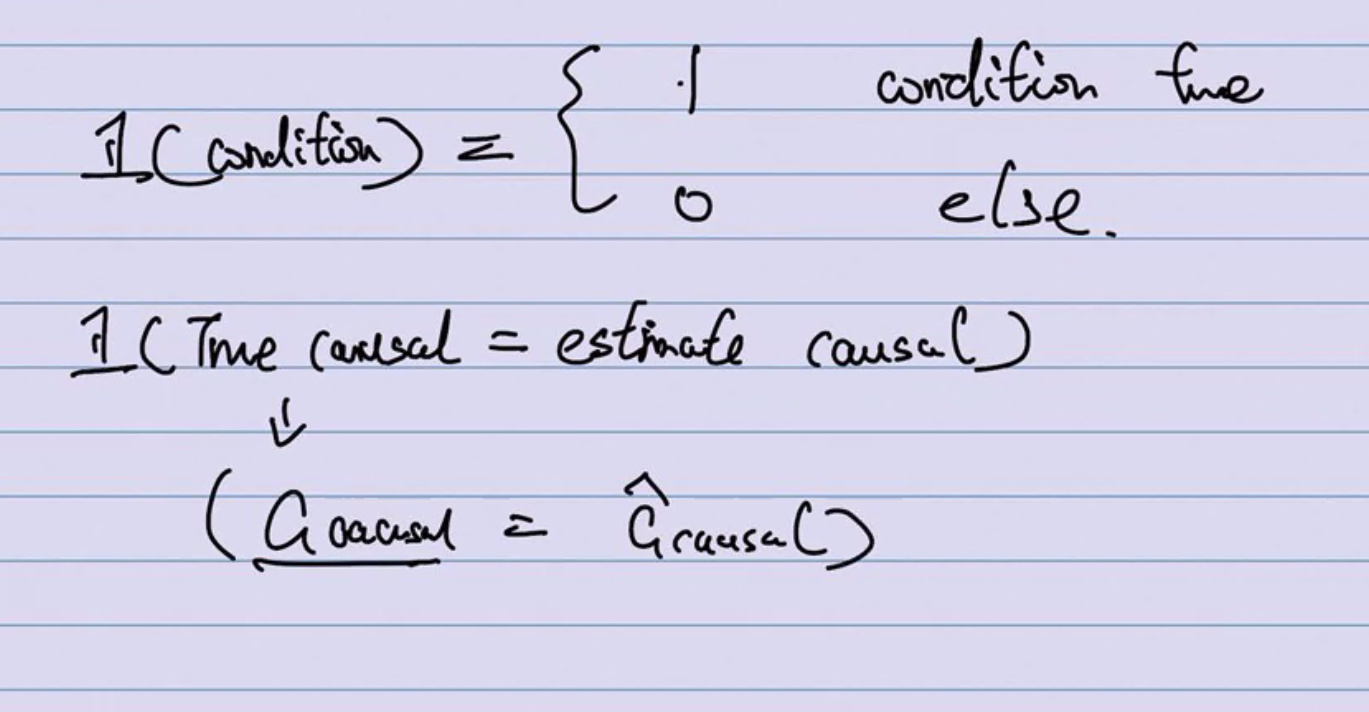 𝟙(condition) = { 1 condition true
0 else.
𝟙(True causal = estimate causal)
↓
(G causal = Ĝ causal)